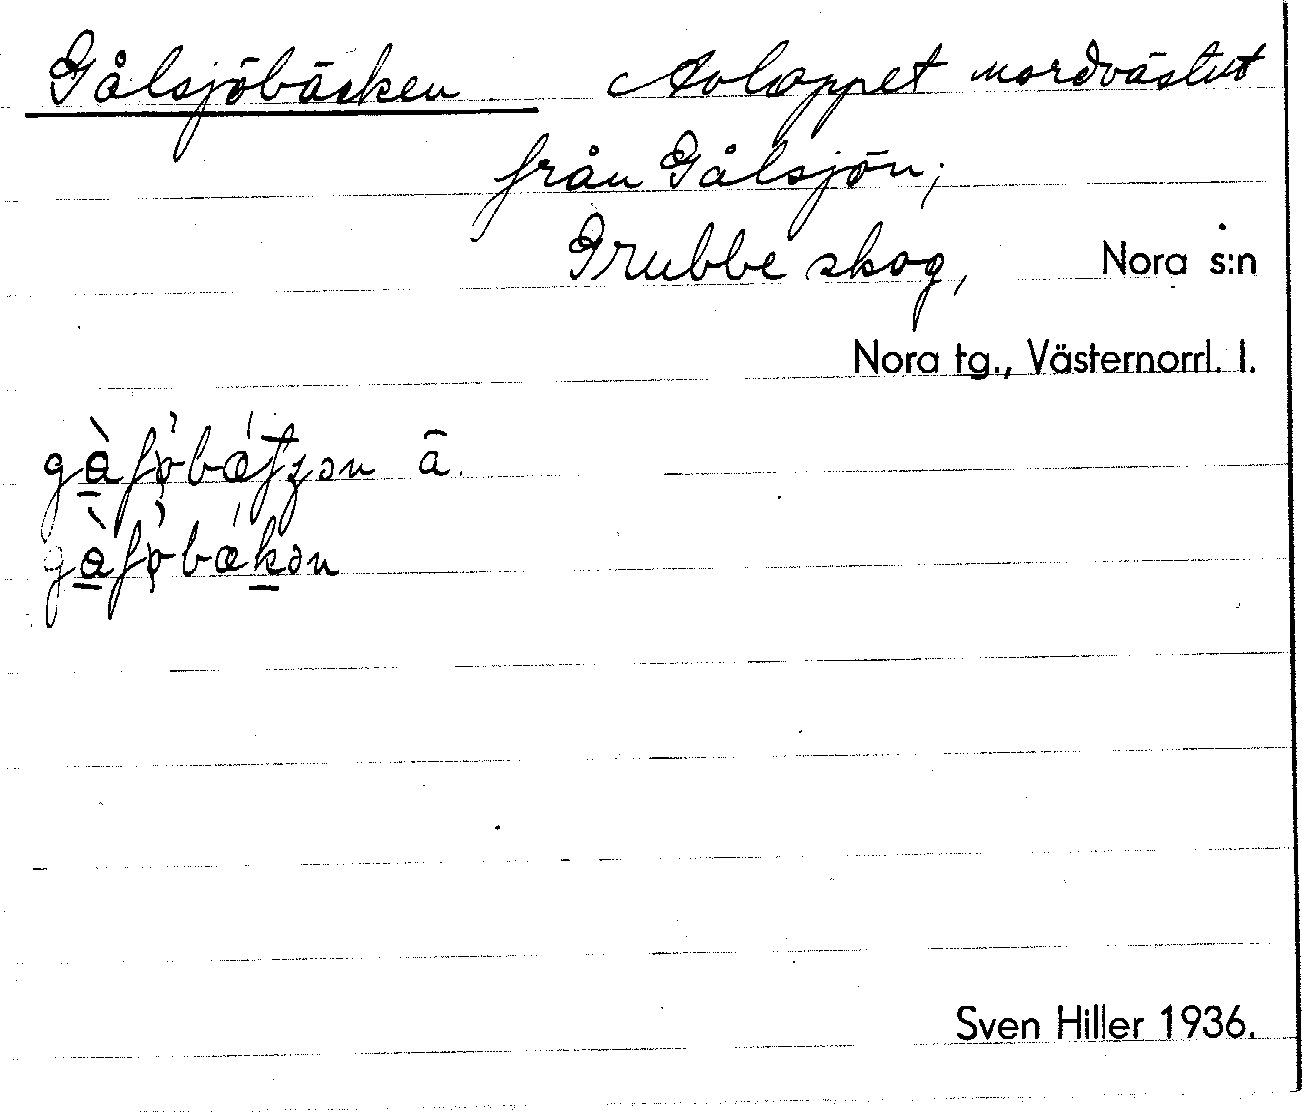 Gålsjöbäcken Avloppet nordvästut
från Gålsjön;
Grubbe skog, Nora s:n
Nora tg., Västernorrl. l.
ā.
Sven Hiller 1936.